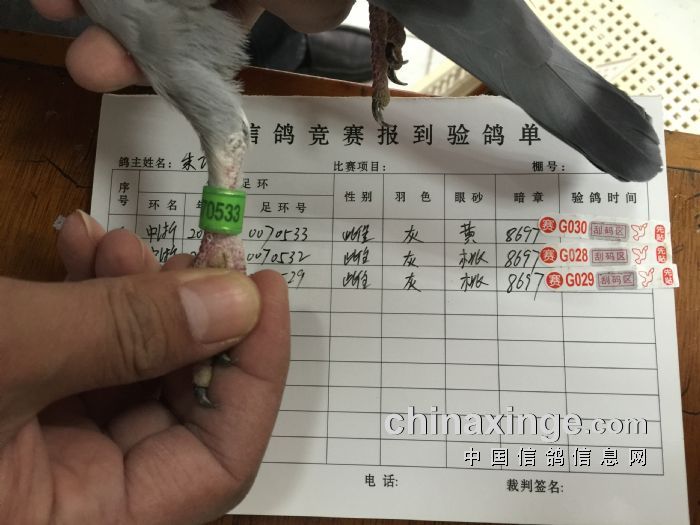 信鸽竞赛报到验鸽单
鸽主姓名: 朱 比赛项目: 棚号:
序号 足环 性别 羽色 眼砂 暗章 验鸽时间
环名 年 足环号
70533
中浙 20 0070533 雌 灰 黄 8697 赛 G030 刮码区
20 0070532 雌 灰 桃 8697 赛 G028 刮码区
29 雌 灰 桃 8697 赛 G029 刮码区
chinaxinge.com
中国信鸽信息网
电话: 裁判签名: